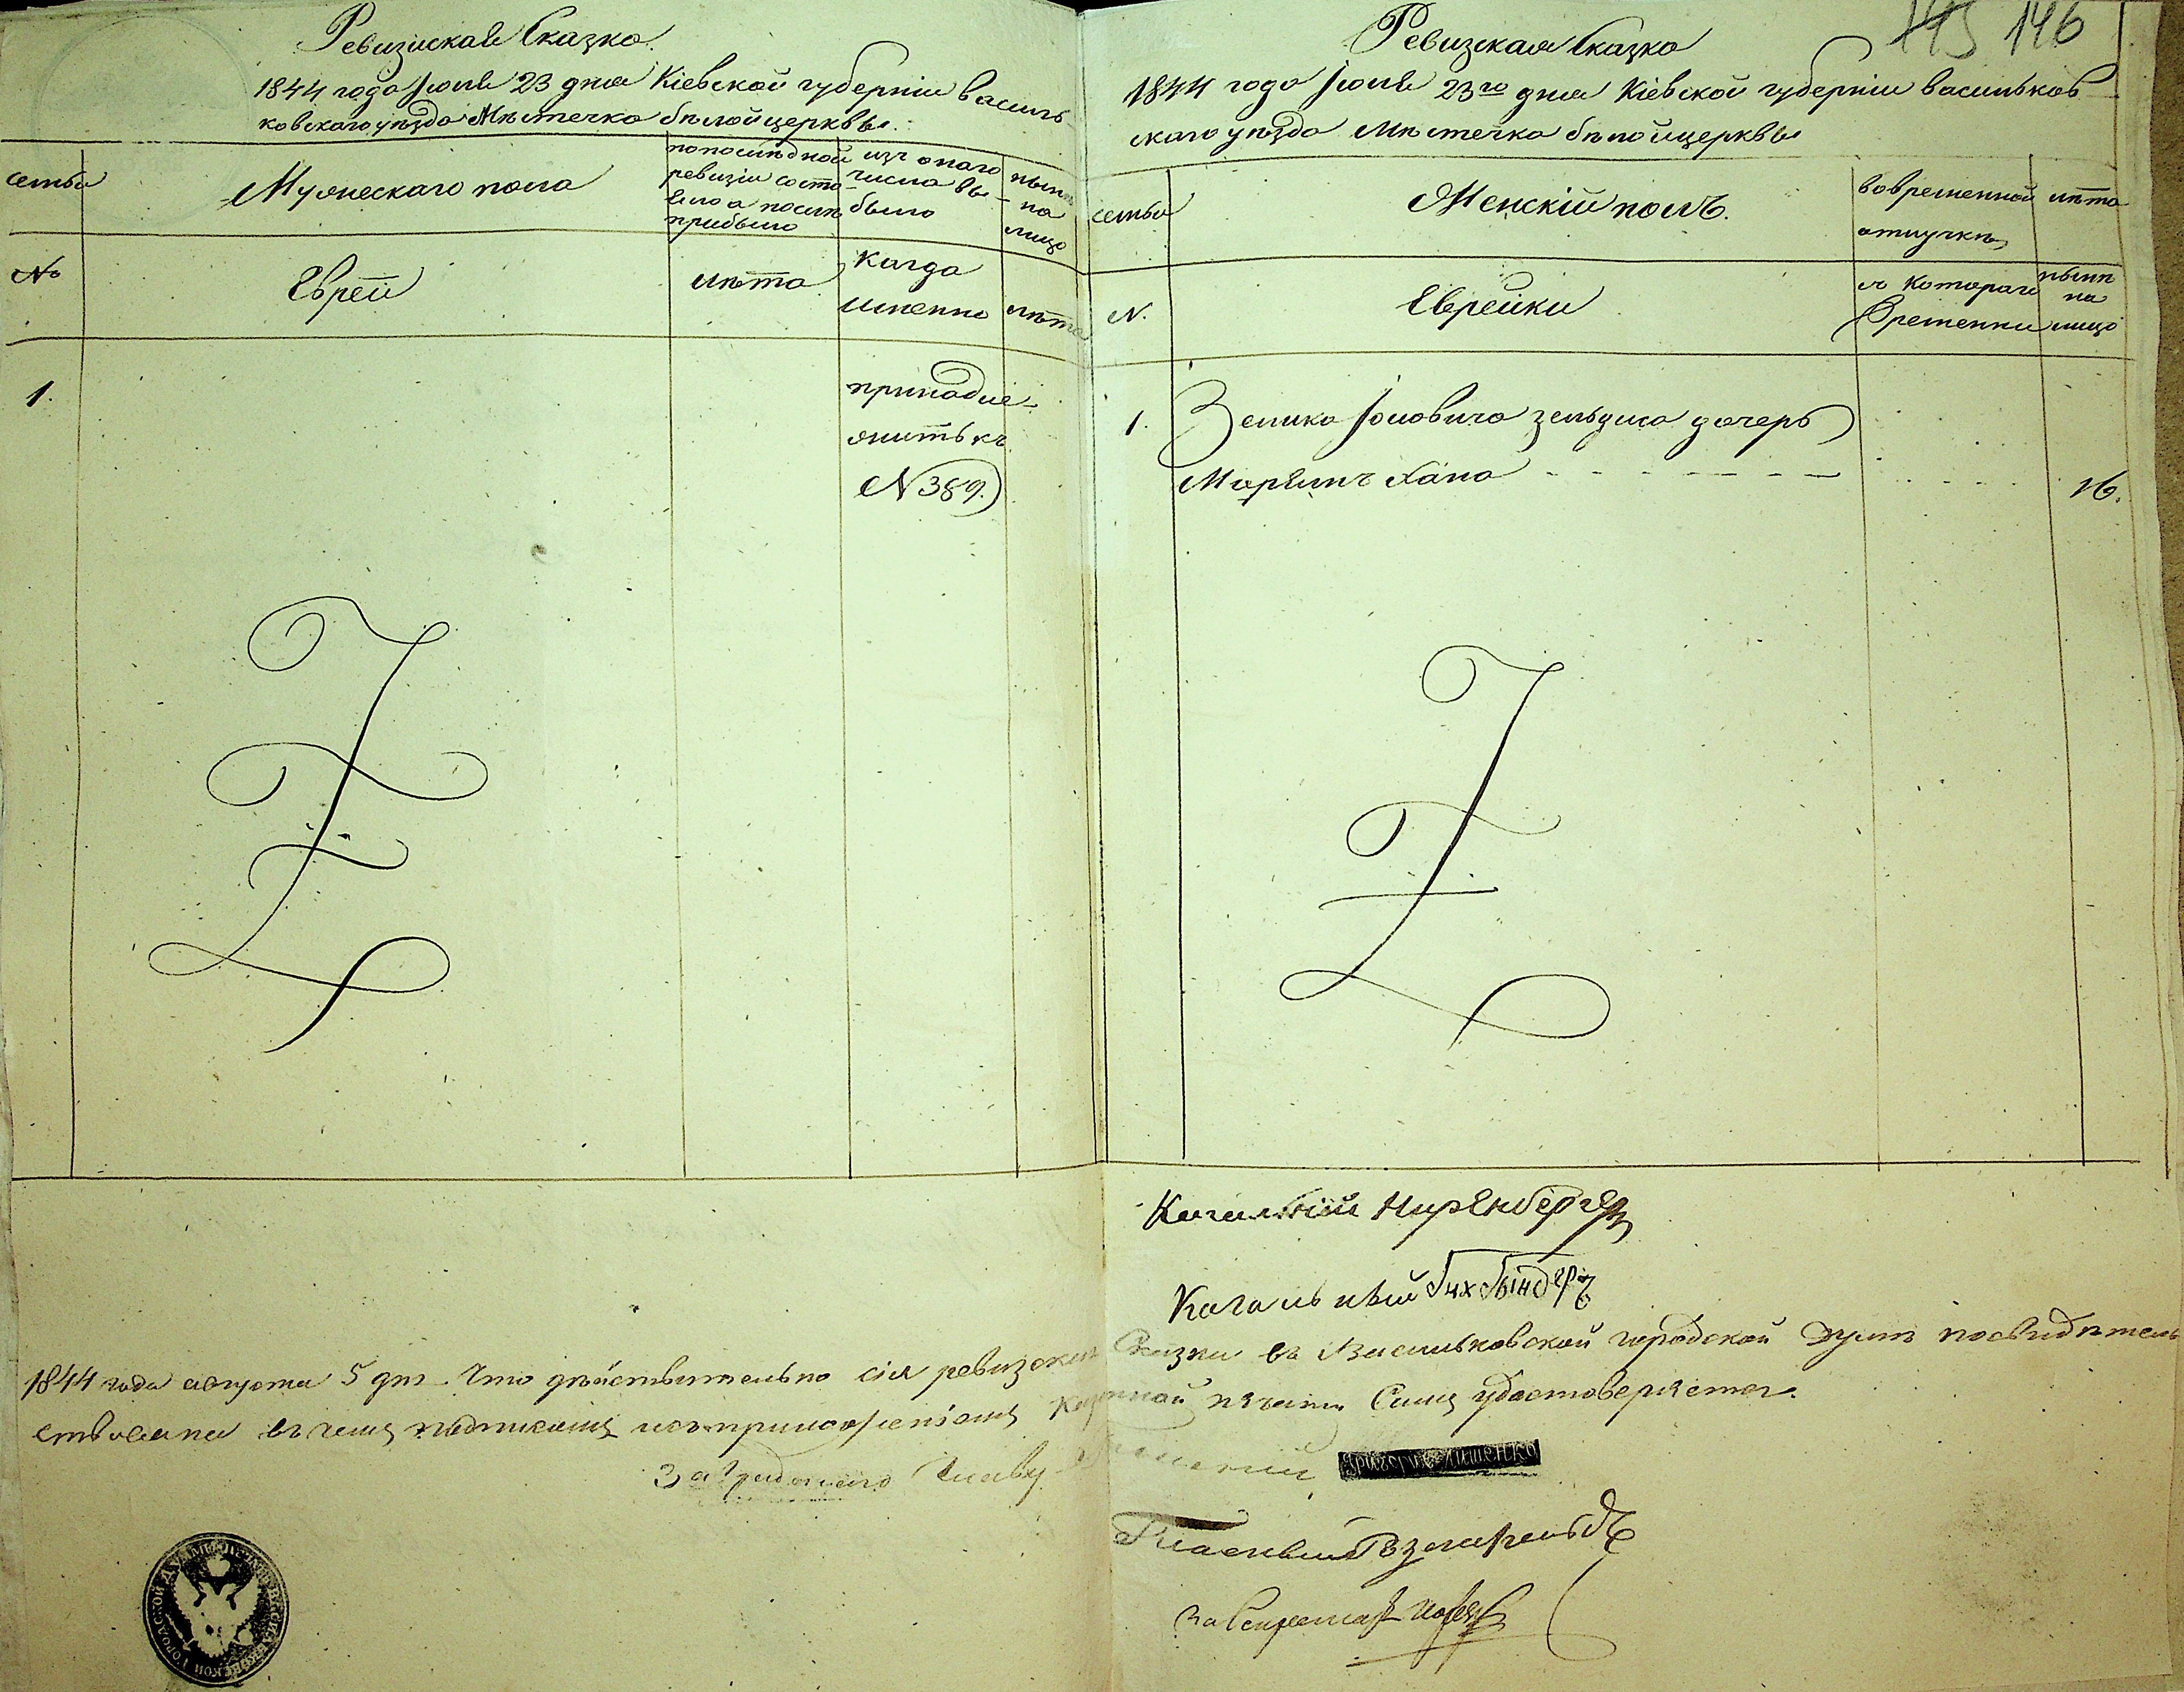 Ревизская Сказка
1844 года Июля 23 дня Кіевской губерніи василь-
ковскаго уѣзда Мѣстечка бѣлойцерквы.
семьи
Мужескаго пола
попослѣдной
ревизіи состо-
яло а послѣ
прибыло
изъ онаго
числа вы-
было
нынѣ
на
лицо
№
Евреи
лѣта
Когда
именно
лѣта
1.
принадле-
житъ къ
N 389.
145 146
Ревизская Сказка
1844 года Июля 23го дня Кіевской губерніи васильков
скаго уѣзда Мѣстечка бѣлойцерквы
семьи
Женскій полъ.
вовременной
отлучкѣ
лѣта
N.
Еврейки
съ котораго
Времени
нынѣ
на
лицо
1. Зелика Іоновича зельдича дочерь
Марьямъ Хана 16.
КагальныйНиренбергъ
Кагальный
1844 года августа 5 дня Что дѣйствительно сія ревизская Сказка въ Васильковской городской Думѣ посвидѣтель
ствована въ чемъ подписомъ съ приложеніемъ Казенной печати Симъ удостоверяется.
За Градскаго Главу
Гласный
За Секретаря